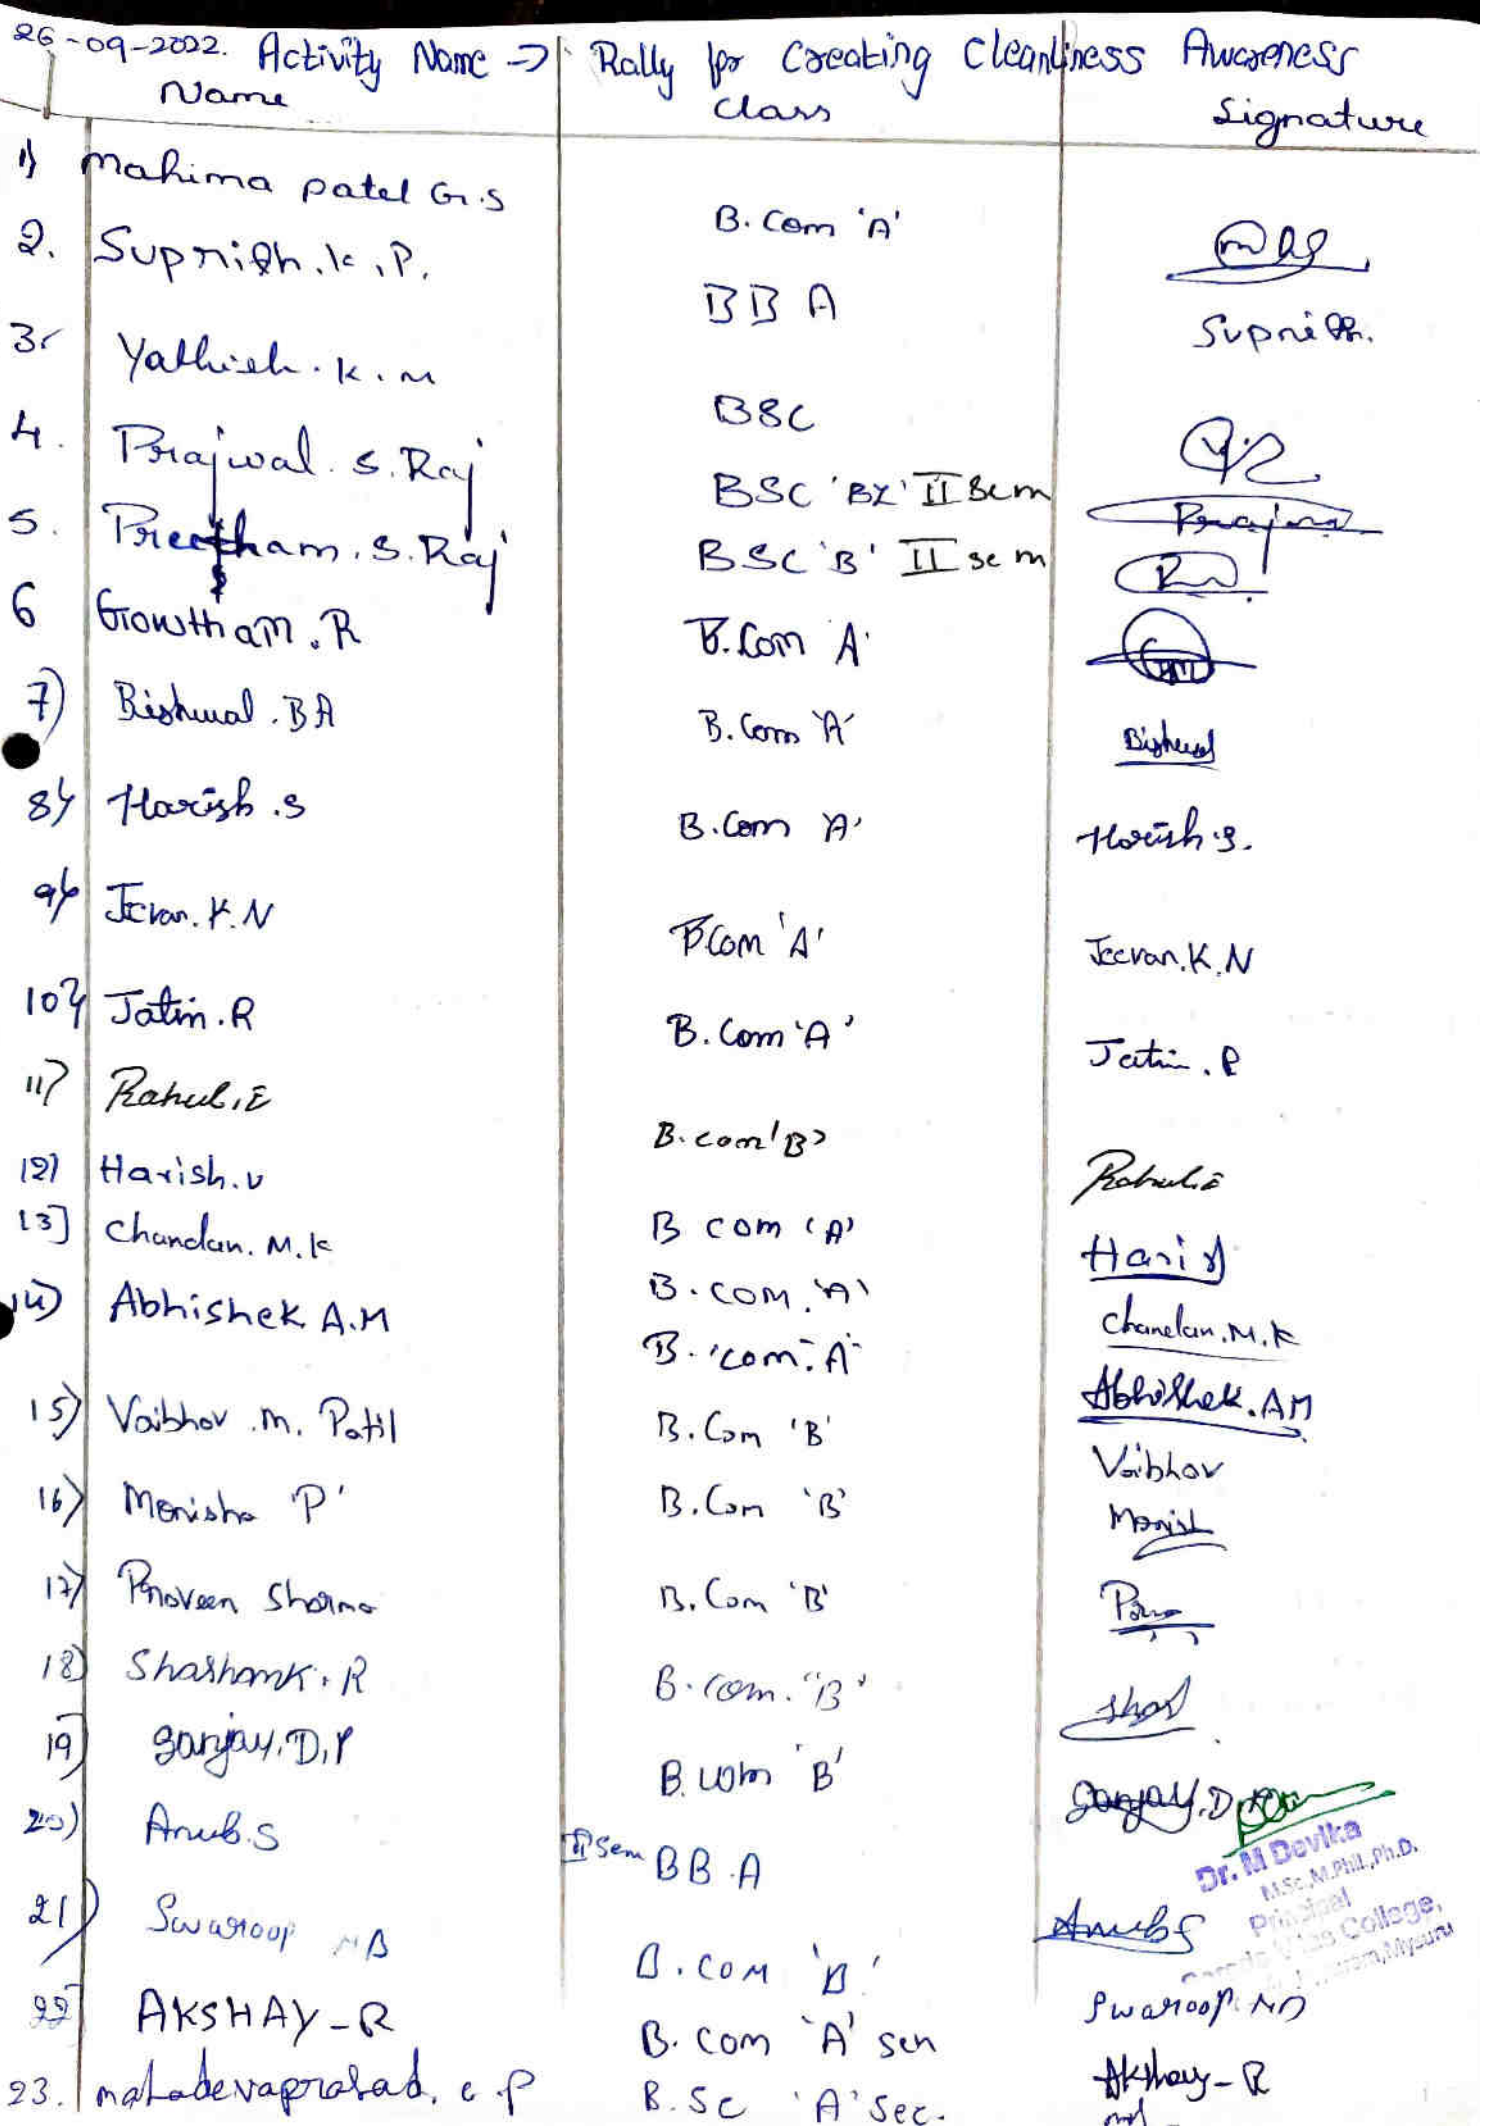 26-09-2022. Activity Name → Rally for Creating Cleanliness Awareness
Name Class Signature
1) Mahima patel G.S B.Com 'A'
2. Suprith.K.P. BBA Suprith.
3. Yathish.K.M BSC
4. Prajwal.S.Raj BSC 'BZ' II Sem Prajwal
5. Preetham.S.Raj BSC 'B' II sem
6 Gowtham.R B.Com 'A'
7) Bishwal.BA B.Com 'A' Bishwal
8) Harish.S B.Com 'A' Harish.S.
9) Jeevan.K.N BCom 'A' Jeevan.K.N
10) Jatin.R B.Com 'A' Jatin.R
11) Rahul.E B.com 'B' Rahul.E
12) Harish.V B com (A) Harish
13] Chandan.M.K B.com.'A' Chandan.M.K
14) Abhishek A.M B.'com'A' Abhishek.AM
15) Vaibhav.M.Patil B.Com 'B' Vaibhav
16) Monisha 'P' B.Com 'B' Monish
17) Praveen Sharma B.Com 'B'
18) Shashank.R B.com."B" Shas
19] Sanjay.D.P B.com 'B' Sanjay.D.P
20) Anub.S II Sem BB.A AnubS
Dr. M Devika
M.Sc.,M.Phil.,Ph.D.
Principal
Sarada Vilas College,
Mysuru
21) Swaroop MB B.COM 'B' Swaroop.MB
22] AKSHAY-R B.Com 'A' Sen Akshay-R
23. mahadevaprasad.c.p B.Sc 'A' Sec.